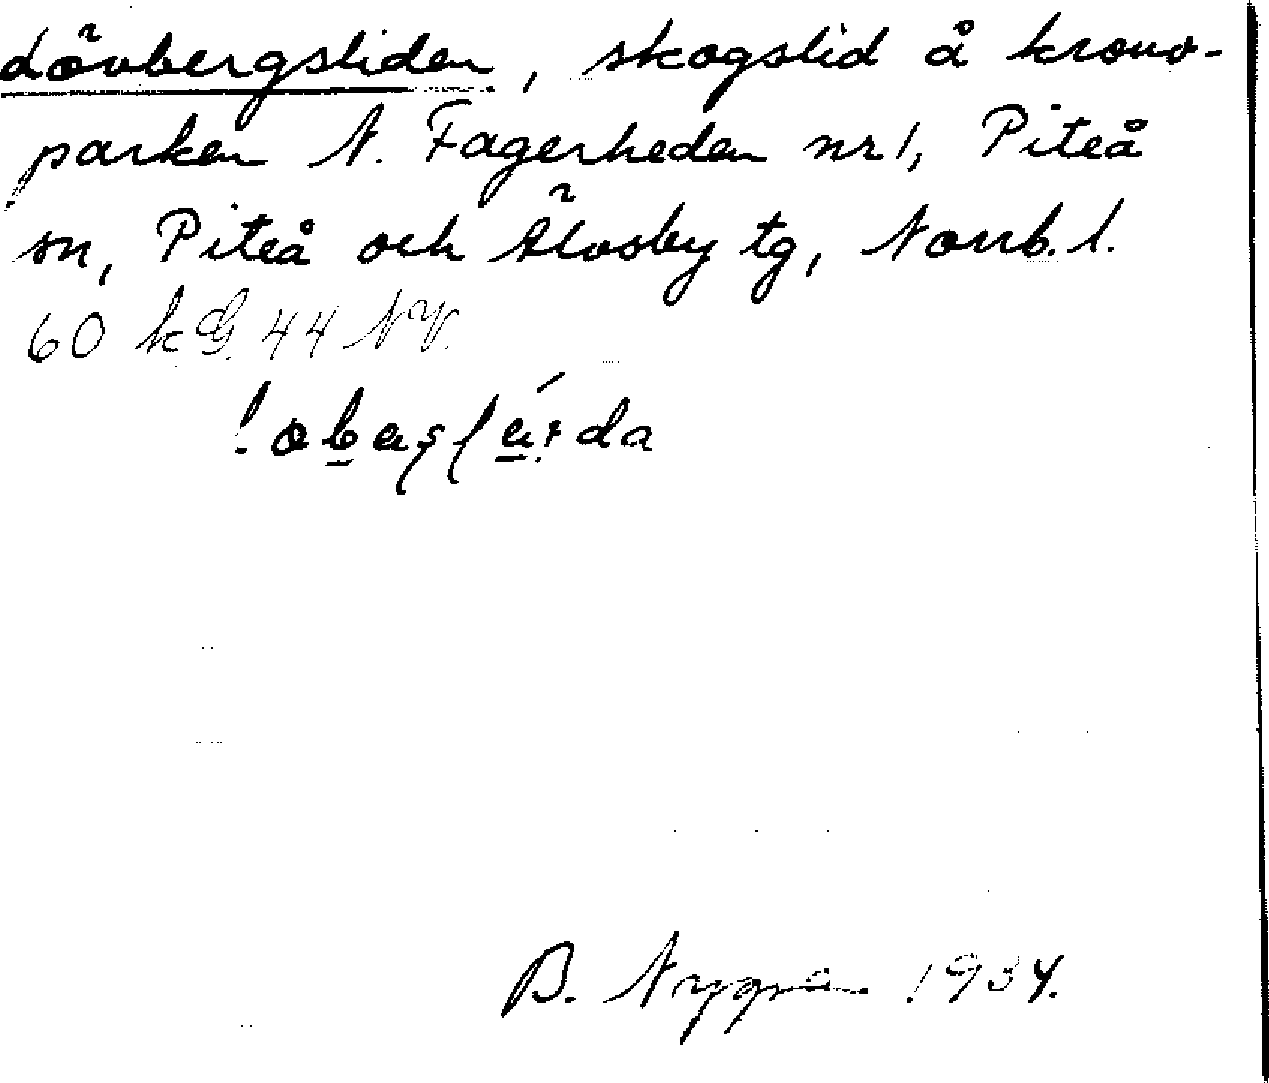 Lövbergsliden, skogslid å krono-
parken N. Fagerheden nr 1, Piteå
sn, Piteå och Älvsby tg, Norrb. l.
60 kG. 44 NV.
B. Nygren 1934.